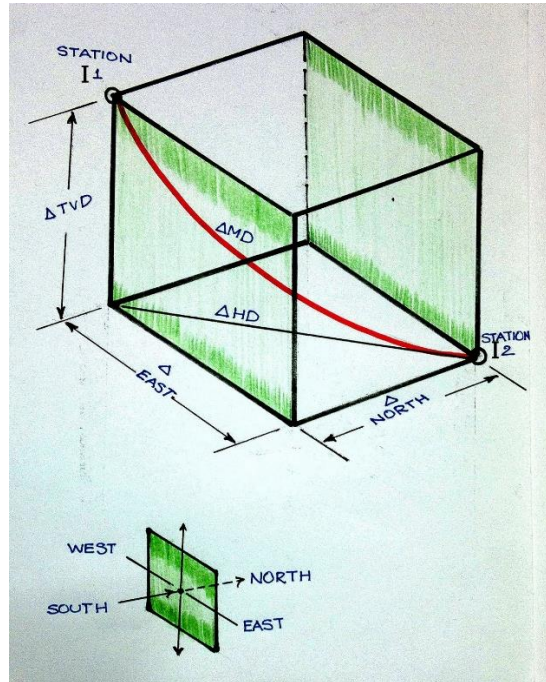 STATION
I1
ΔTVD
ΔMD
ΔHD
STATION
I2
Δ
EAST
Δ
NORTH
WEST
NORTH
SOUTH
EAST